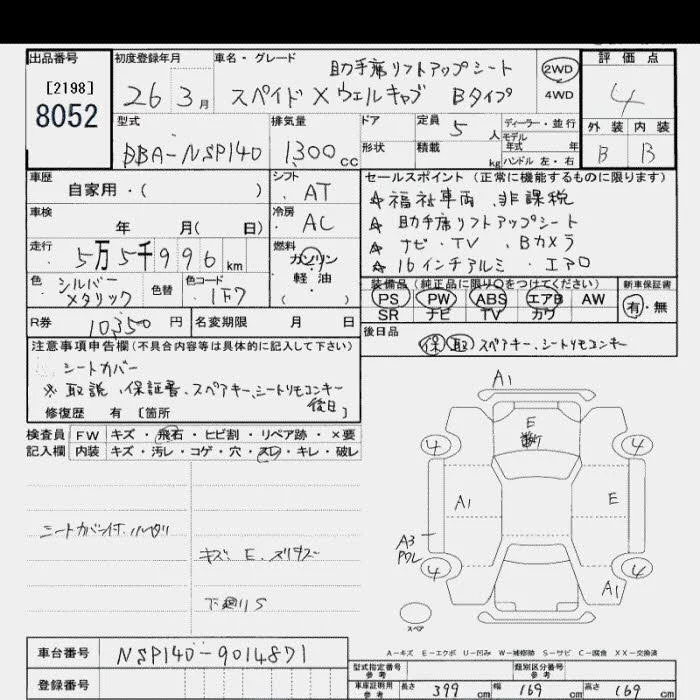 出品番号
[2198]
8052
初度登録年月
26 3月
車名・グレード
助手席リフトアップシート
スペイド X ウェルキャブ Bタイプ
2WD
4WD
評価点
4
外装 内装
B B
型式
DBA-NSP140
排気量
1300cc
ドア
形状
定員 5人
積載 kg
ディーラー・並行
モデル年式 年
ハンドル 左・右
車歴
自家用・( )
シフト
AT
車検
年 月( 日)
冷房
AC
走行
5万5千996km
燃料
ガソリン
軽油
( )
色
シルバーメタリック
色替
色コード
1F7
R券 10350円
名変期限 月 日
セールスポイント (正常に機能するものに限ります)
☆ 福祉車両、非課税
☆ 助手席リフトアップシート
☆ ナビ・TV、Bカメラ
☆ 16インチアルミ・エアロ
装備品 (純正品に限り○をつけてください)
PS PW ABS エアB AW
SR ナビ TV カワ
新車保証書
有・無
後日品
保 取 スペアキー、シートリモコンキー
注意事項申告欄(不具合内容等は具体的に記入して下さい)
シートカバー
※ 取説、保証書、スペアキー、シートリモコンキー
後日
修復歴 有 [箇所
検査員記入欄
FW キズ・飛石・ヒビ割・リペア跡・×要
内装 キズ・汚レ・コゲ・穴・スレ・キレ・破レ
シートカバー付
キズ、E、スリキズ
下廻りS
A1
E
4
4
A1
E
A3
4
4
A1
スペア
A-キズ E-エクボ U-凹み W-補修跡 S-サビ C-腐食 XX-交換済
車台番号 NSP140-9014871
登録番号
型式指定番号 参考
類別区分番号 参考
車庫証明用 参考
長さ 399cm 幅 169cm 高さ 169cm